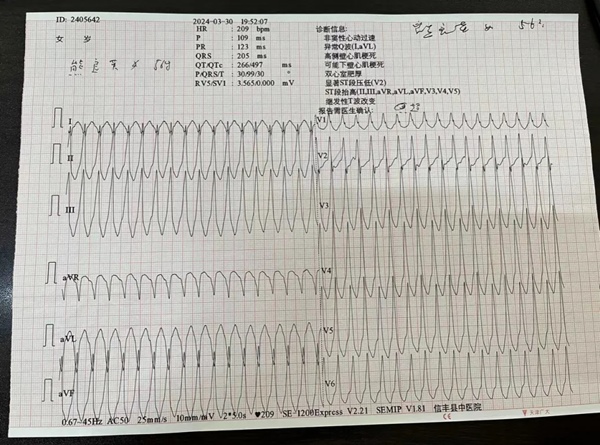 ID: 2405642
女 岁
2024-03-30 19:52:07
HR : 209 bpm
P : 109 ms
PR : 123 ms
QRS : 205 ms
QT/QTc : 266/497 ms
P/QRS/T : 30/99/30 °
RV5/SV1 : 3.565/0.000 mV
诊断信息:
非窦性心动过速
异常Q波(I,aVL)
高侧壁心肌梗死
可能下壁心肌梗死
双心室肥厚
显著ST段压低(V2)
ST段抬高(II,III,aVR,aVL,aVF,V3,V4,V5)
继发性T波改变
报告需医生确认:
I
II
III
aVR
aVL
aVF
V1
V2
V3
V4
V5
V6
0.67~45Hz AC50 25mm/s 10mm/mV ~2*5.0s ♥209 SE-1200Express V2.21 SEMIP V1.81 信丰县中医院
CE